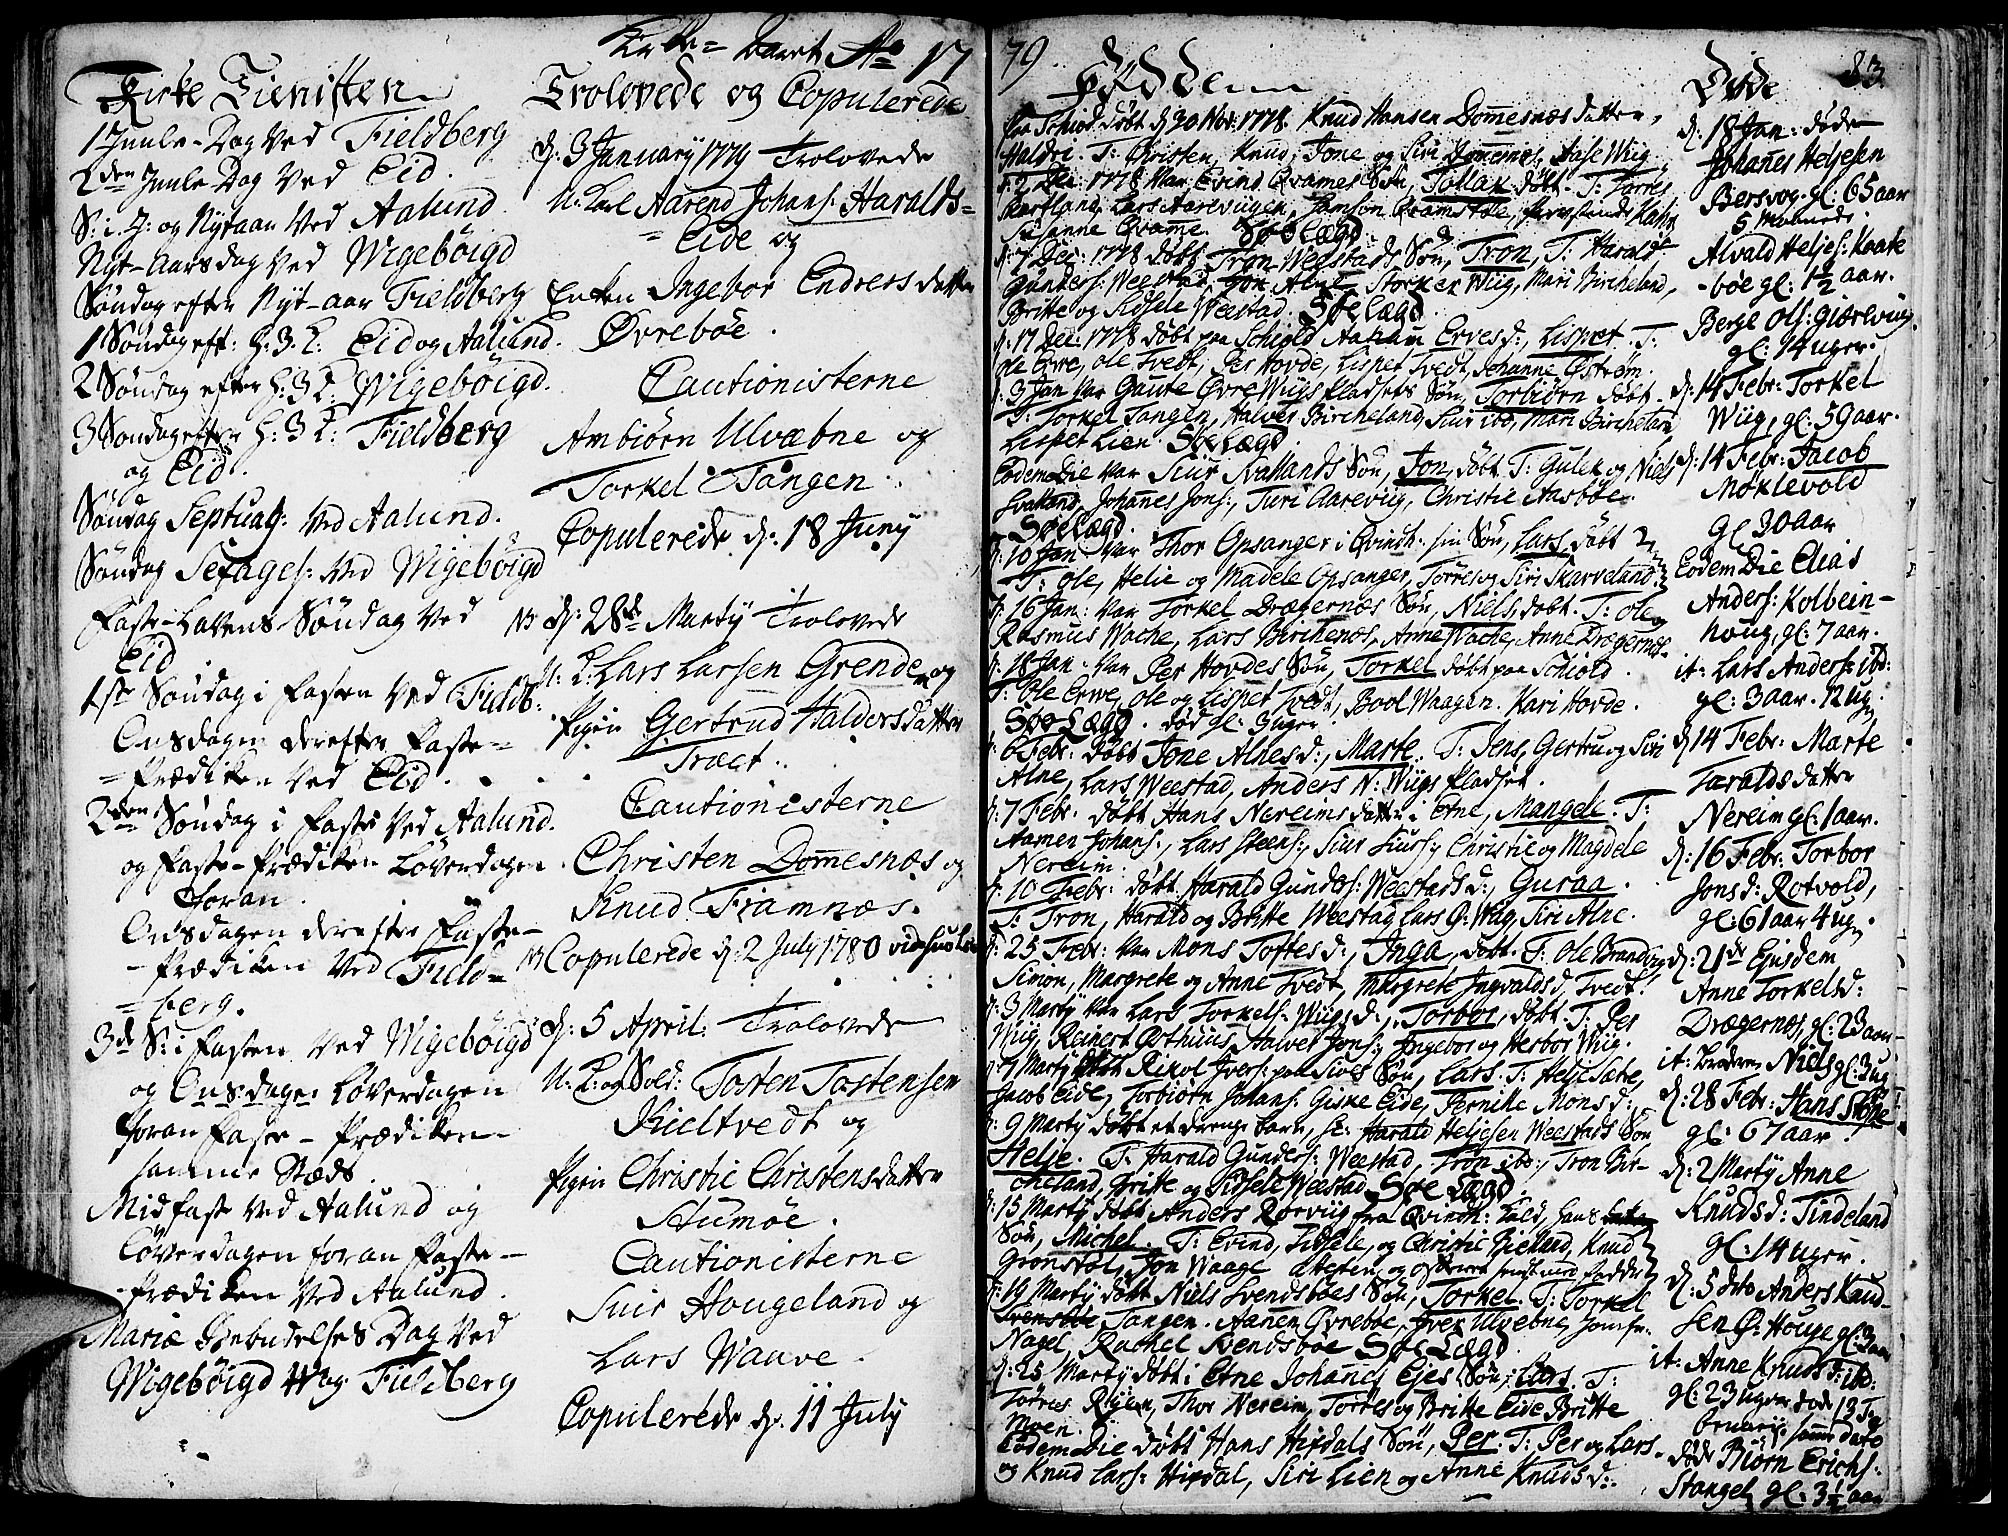 Kirke Aaret Ao 17
79.
83.
Kirke Tienisten
1 Juule-Dag ved Fieldberg
2den Juule Dag ved Eid.
S: i J: og Nytaar ved Aalund
Nyt-Aarsdag ved Wigebøigd
Søndag efter Nyt-aar Fieldberg
1 Søndag eft: H: 3 K: Eid og Aalund.
2 Søndag efter H: 3 K: Wigebøigd.
3 Søndag efter H: 3 K: Fieldberg
og Eid.
Søndag Septuag: ved Aalund.
Søndag Sexages: ved Wigebøigd
Faste-Lavens Søndag ved
Eid
1ste Søndag i Fasten ved Fieldb:
Onsdagen derefter Faste=
=Prædiken ved Eid.
2den Søndag i Faste ved Aalund.
og Faste-Prædiken Løverdagen
foran.
Onsdagen derefter Faste-
-Prædiken ved Field=
=berg.
3de S: i Fasten ved Wigebøigd
og Onsdagen Løverdagen
foran Faste-Prædiken
samme Stæds
Midfaste ved Aalund og
Løverdagen foran Faste-
-Prædiken ved Aalund.
Mariæ Bebudelses Dag ved
Wigebøigd og Fieldberg
Trolovede og Copulerede
d: 3 January 1779 Trolovede
U: Karl Aarend Johans: Haralds=
=Eide og
Enken Ingebor Endersdatter
Øvrebøe.
Cautionisterne
Ambiørn Ulvebne og
Torkel Tangen.
Copulerede d: 18 Juny
NB d: 28de Marty Trolovede
U: K: Lars Larsen Grende og
Pigen Gertrud Haldorsdatter
Træet.
Cautionisterne
Christen Dommesnæs og
Knud Framnæs.
NB Copulerede d: 2 July 1780
d: 5 April: Trolovede
U: K: og Sold: Tosten Tostensen
Kieltvedt og
Pigen Christie Christensdatter
Stumøe.
Cautionisterne
Siur Hougeland og
Lars Waave.
Copulerede d: 11 July
Fødde
paa Schiold døbt d: 30 Nov: 1778 Knud Hansen Domesnæs datter,
Haldri. T: Christen, Knud, Jone og Siri Domesnæs, Aase Wiig
d: 2 Dec: 1778 var Evind Qvames Søn, Tollak døbt. T: Torres
Susanne Qvame. Søe Lægd.
d: 7 Dec: 1778 døbt Tron Weestads Søn, Tron, T: Harald
Gunders: Weestad, Jon Alne, Storker Wiig, Mari Bircheland,
Britte og Sidsele Weestad Søe Lægd
d: 17 Dec: 1778 døbt paa Schiold Aaham Erves d:, Lispet. T:
Ole Erve, Ole Tvedt, Per Hovde, Lispet Tvedt, Johanne Østrem.
d: 3 Jan var Gaute Øvre Wiigs Pladsets Søn, Torbiørn døbt.
T: Torkel Tangen, Halver Bircheland, Siur ibd, Mari Bircheland
Lispet Lien Søe Lægd
Eodem Die var Siur Svallands Søn, Jon, døbt. T: Gulek og Niels
Svalland, Johannes Jons:, Turi Aareviig, Christie Aasbøe.
Søe Lægd.
d: 10 Jan var Thor Opsanger i Qvindh: sin Søn, Lars døbt
T: Ole, Helie og Madele Opsanger, Torres og Siri Skarveland
d: 16 Jan: var Torkel Drægernæs Søn, Niels, døbt. T: Ole
Rasmus Wache, Lars Birchenæs, Anne Wache, Anne Drægernæs.
d: 18 Jan: var Per Hovdes Søn, Torkel døbt paa Schiold.
T: Ole Erve, Ole og Lispet Tvedt, Bool Waagen. Kari Hovde.
Søe Lægd. død gl: 3 uger
d: 6 Febr: døbt Tone Alnes d:, Marte. T: Jens, Gertru og Siri
Alne, Lars Weestad, Anders N: Wiigs Pladset.
d: 7 Febr: døbt Hans Nereims datter i Etne, Mangele. T:
Aamen Johans:, Lars Steens:, Siur Siurs:, Christie og Magdele
Nereim.
d: 10 Febr: døbt Harald Gunders: Weestads d:, Guraa.
T: Tron, Harald og Britte Weestad, Lars Ø: Wiig, Siri Alne.
d: 25 Febr: var Mons Toftes d:, Inga, døbt. T: Ole Brandvig
Simon, Margrete og Anne Tvedt, Margrete Ingvalds d, Tvedt.
d: 3 Marty var Lars Torkels: Wiigs d:, Torbor, døbt. T: Per
Wiig, Reinert Østhuus, Halver Jons:, Ingebor og Herbor Wiig.
d: 7 Marty døbt Rikol Ivers: paa Sives Søn, Lars. T: Helje Satre,
Jacob Eide, Torbiørn Johans: Giske Eide, Pernike Mons d:
d: 9 Marty døbt et drenge barn, sc: Harald Heljesen Weestads Søn
Helje. T: Harald Gunders: Weestad, Tron ibd:, Tron Bir-
cheland, Britte og Sidsele Weestad Søe Lægd
d: 15 Marty døbt Anders Rørviig fra Qvindh: Kald, hans
Søn, Michel. T: Evind, Sidsele, og Christie Bieland, Knud
Grønstøl, Jon Waage
d: 19 Marty døbt Niels Svendsbøes Søn, Torkel. T: Torkel
Tangen. Aanen Øvrebøe, Iver Ulvebne, Jomfr:
Nagel, Rachel Svendsbøe Søe Lægd.
d: 25 Marty døbt i Etne Johannes Ejes Søn, Lars. T:
Torres Rygen, Thor Nereim, Torres og Britte Eide Britte
Moen.
Eodem Die døbt Hans Hisdals Søn, Per. T: Per og Lars
og Knud Lars: Hisdal, Siri Lien og Anne Knuds d:
Døde
d: 18 Jan: døde
Johannes Heljesen
Bersvog. gl: 65 aar
5 Maaneder.
Alvald Heljes: Kaate
-bøe gl: 1½ aar.
Berge Ols: Giærevig.
gl: 14 uger.
d: 14 Febr: Torkel
Wiig, gl: 59 aar.
d: 14 Febr: Jacob
Møklevold
gl: 30 aar
Eodem Die Elias
Anders: Kolbein-
houg, gl: 7 aar.
it: Lars Anders: ibd:
gl: 3 aar. 12 ug:
d: 14 Febr: Marte
Taralds datter
Nereim gl: 1 aar.
d: 16 Febr: Torbor
Jons d: Rotvold,
gl: 61 aar 4 ug:
d: 21de Ejusdem
Anne Torkels d:
Drægernæs, gl: 23 aar
it: Niels gl: 3 ug
d: 28 Febr: Hans Støle
gl: 67 aar.
d: 2 Marty Anne
Knuds d: Tindeland
gl: 14 uger.
d: 5 dito Anders Knud-
sen Ø: Houge gl: 3 aar
it: Anne Knuds d: ibd:
gl: 23 uger døde 13 Fe
bruary. samme dato
døde Biørn Erichs:
Stangel gl: 3½ aar